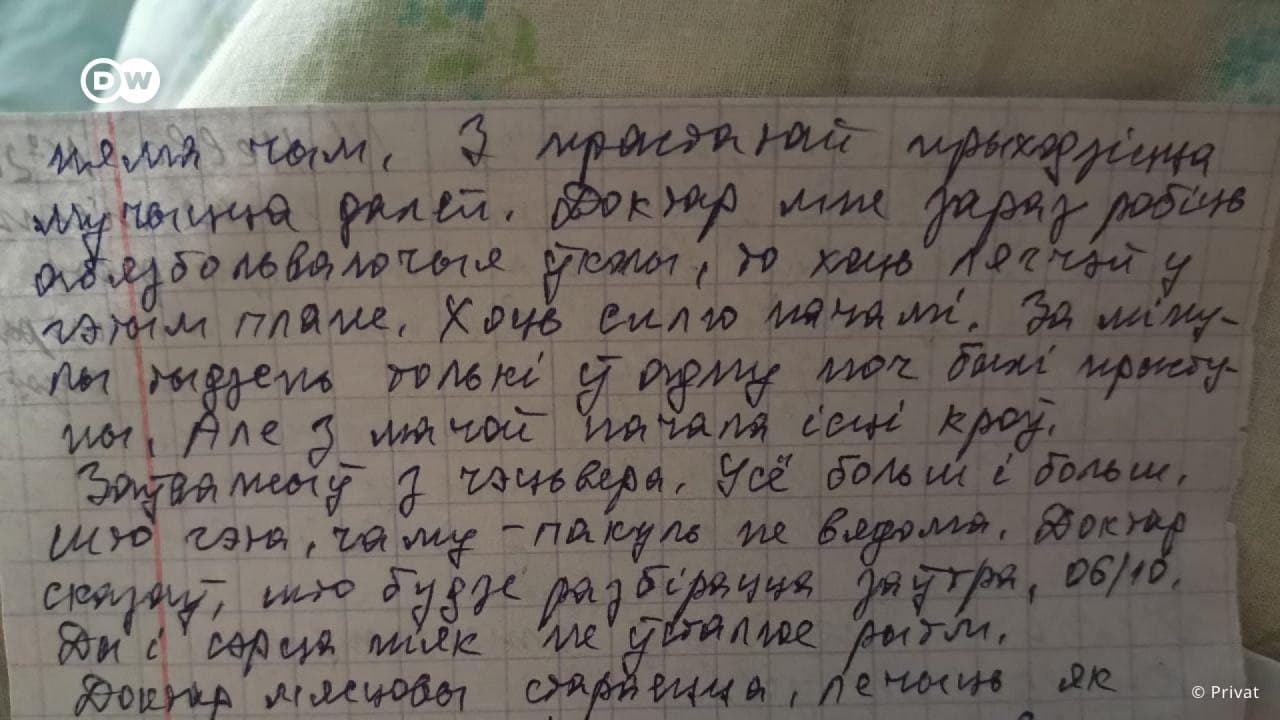 DW
няма чым. З прастатай прыходзіцца
мучыцца далей. Доктар мне зараз робіць
абязбольвалочыя ўколы, то хоць лягчэй у
гэтым плане. Хоць сплю начамі. За міну-
лы тыдзень толькі ў адну ноч былі прысту-
пы. Але з мачой пачала ісці кроў.
Заўважыў з чацьвера. Усё больш і больш.
што гэта, чаму - пакуль не вядома. Доктар
сказаў, што будзе разбірацца заўтра, 06/10.
Ды і сэрца ніяк не ўсталюе рытм.
Доктар мясцовы стараецца, лечыць як
© Privat